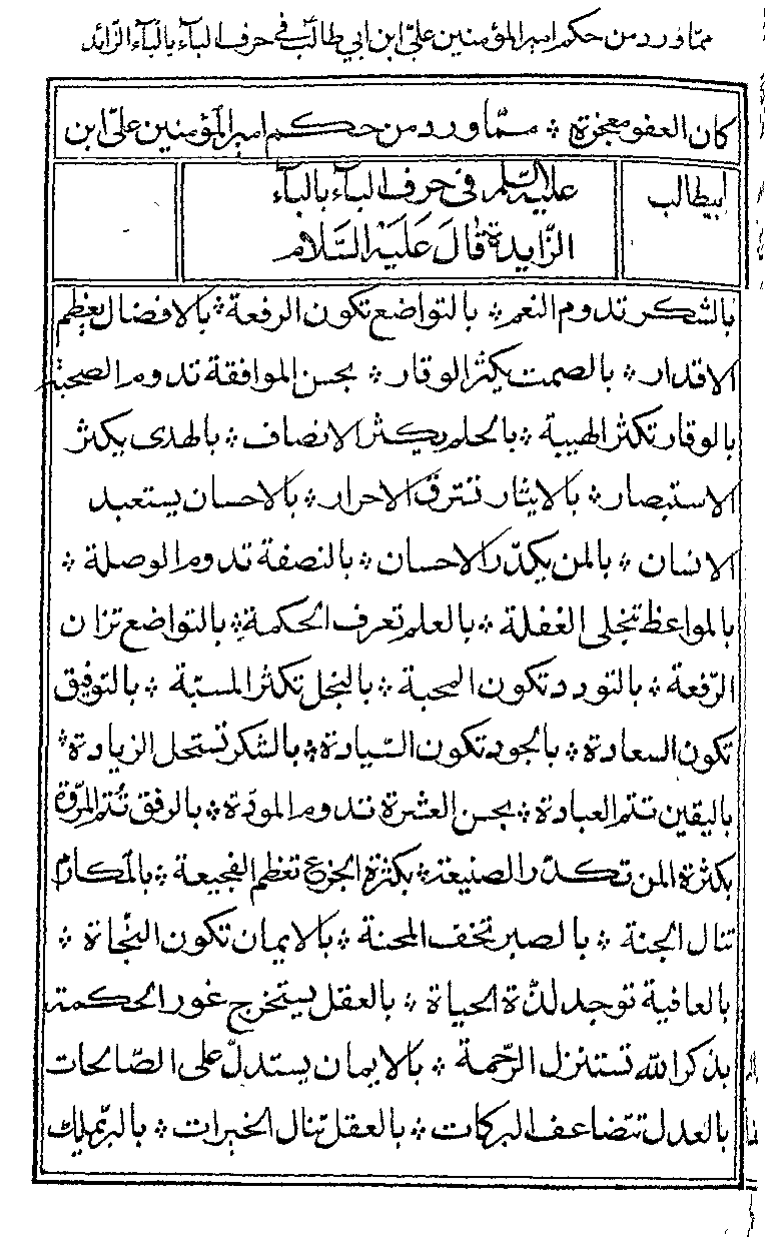 ممّا ورد من حكم امير المؤمنين علىّ ابن ابي طالب في حرف الباء بالباء الزّائد
كان العفو معجزة ؞ ممّا ورد من حكم امير المؤمنين علىّ ابن
ابيطالب عليه السّلم فى حرف الباء بالباء
الزّايدة قَالَ عَلَيْهِ السَّلام
بالشكر تدوم النعم ؞ بالتواضع تكون الرفعة ؞ بالافضال يعظم
الاقدار ؞ بالصمت يكثر الوقار ؞ بحسن الموافقة تدوم الصحبة
بالوقار تكثر الهيبة ؞ بالحلم يكثر الانصاف ؞ بالهدى يكثر
الاستبصار ؞ بالايثار تسترق الاحرار ؞ بالاحسان يستعبد
الانسان ؞ بالمن يكدّر الاحسان ؞ بالنصفة تدوم الوصلة ؞
بالمواعظ تنجلى الغفلة ؞ بالعلم تعرف الحكمة ؞ بالتواضع تزان
الرّفعة ؞ بالتودد تكون المحبة ؞ بالبخل تكثر المسبّة ؞ بالتوفيق
تكون السعادة ؞ بالجود تكون السّيادة ؞ بالشكر تستحل الزيادة ؞
باليقين تتم العبادة ؞ بحسن العشرة تدوم المودّة ؞ بالرفق تُتم المرّوة
بكثرة المن تكدّر الصنيعة ؞ بكثرة الجزع تعظم الفجيعة ؞ بالمكارم
تنال الجنة ؞ بالصبر تخف المحنة ؞ بالايمان تكون النجاة ؞
بالعافية توجد لذّة الحياة ؞ بالعقل يستخرج غور الحكمة
بذكر الله تستنزل الرّحمة ؞ بالايمان يستدلّ على الصّالحات
بالعدل تتضاعف البركات ؞ بالعقل تنال الخيرات ؞ بالبرّ يملك